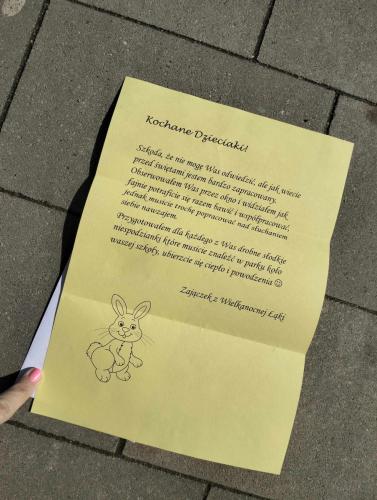 Kochane Dzieciaki!
Szkoda, że nie mogę Was odwiedzić, ale jak wiecie
przed świętami jestem bardzo zapracowany.
Obserwowałem Was przez okno i widziałem jak
fajnie potraficie się razem bawić i współpracować,
jednak musicie trochę popracować nad słuchaniem
siebie nawzajem.
Przygotowałem dla każdego z Was drobne słodkie
niespodzianki które musicie znaleźć w parku koło
waszej szkoły, ubierzcie się ciepło i powodzenia ☺
Zajączek z Wielkanocnej Łąki